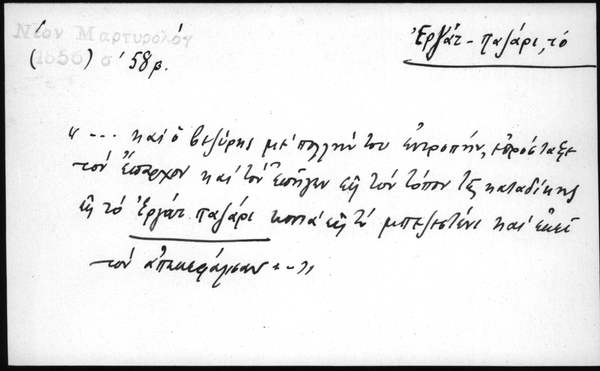 Νέον Μαρτυρολόγ
(1856) σ' 58β.
Ἐργάτ - παζάρι, τό
"... καὶ ὁ βεζύρης μὲ πολλήν του ἐντροπήν, ἐπρόσταξε
τὸν ἔπαρχον καὶ τὸν ἐπῆγεν εἰς τὸν τόπον τῆς καταδίκης
εἰς τὸ Ἐργάτ παζάρι κοντὰ εἰς τὸ μπεζεστένι καὶ ἐκεῖ
τὸν ἀπεκεφάλισαν ..."